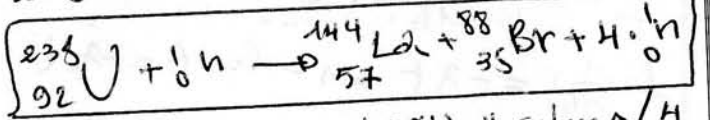 ²³⁵₉₂U + ¹₀n → ¹⁴⁴₅₇La + ⁸⁸₃₅Br + 4·¹₀n